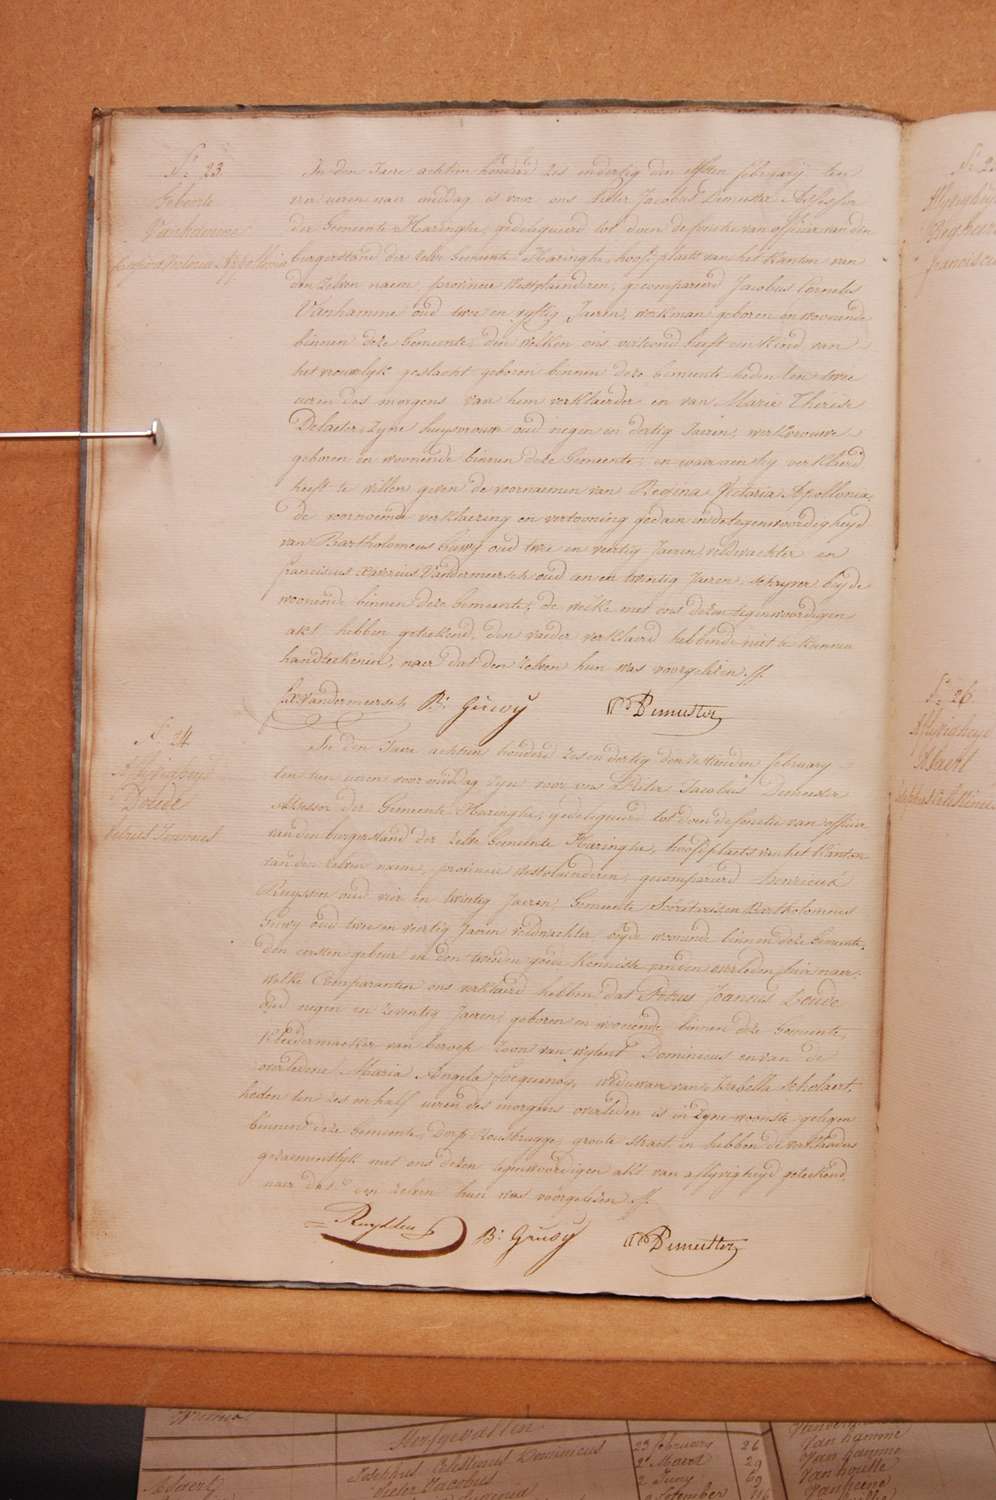 N.o 23
Geboorte
Vanhamme
Regina Victoria Appollonia
In den Jaere achtien honderd zes en dertig den elfsten february ten
vier ueren naer middag is voor ons Pieter Jacobus Demuster Assessor
der Gemeente Haringhe, gedeligueerd tot doen de functie van officier van den
burgerstand der zelve Gemeente Haringhe, hoofdplaets van het kanton van
den zelven naem, provincie Westvlaenderen, gecompareerd Jacobus Cornelis
Vanhamme oud twee en vyftig Jaeren, werkman geboren en woonende
binnen deze Gemeente, den welken ons vertoond heeft een kind van
het vrouwelyk geslacht geboren binnen deze Gemeente heden ten twee
ueren des morgens van hem verklaerder en van Marie Therese
Delaeter, zyne huysvrouwe oud negen en dertig Jaeren, werkvrouwe
geboren en woonende binnen deze Gemeente, en waer aen hy verklaerd
heeft te willen geven de voornaemen van Regina Victoria Apollonia.
de voornoemde verklaering en vertooning gedaen in de tegenwoordigheyd
van Bartholomeus Gruwy oud twee en veertig Jaeren, veldwachter en
franciscus Xaverius Vandermeersch oud een en twintig Jaeren, schryver beyde
woonende binnen deze Gemeente, de welke met ons dezen tegenwoordigen
akt hebben geteekend, den vaeder verklaerd hebbende niet te kunnen
handteekenen, naer dat den zelven hun was voorgelezen ./.
fx. Vandermeersch B: Gruwy PJ Demuster
N.o 24
Aflyvigheyd
Doude
Petrus Joannes
In den Jaere achtien honderd zes en dertig den zestienden february
ten tien ueren voor middag zyn voor ons Pieter Jacobus Demuster
Assessor der Gemeente Haringhe, gedeligueerd tot doen de functie van officier
van den burgerstand der zelve Gemeente Haringhe, hoofdplaets van het kanton
van den zelven naem, provincie Westvlaenderen, gecompareerd henricus
Ruyssen oud vier en twintig Jaeren, Gemeente Secretaris en Bartholomeus
Gruwy oud twee en veertig Jaeren veldwachter, beyde woonende binnen deze Gemeente,
den eersten gebeur en den tweeden goede kennisse van den overleden hier naer,
welke Comparanten ons verklaerd hebben dat Petrus Joannes Doude
oud negen en zeventig Jaeren, geboren en woonende binnen deze Gemeente,
kleedermaeker van beroep zoon van wylent Dominicus en van de
overledene Maria Angela, weduwaer van Isabelle Scholaert,
heden ten zes en half ueren des morgens overleden is in zyne woonste gelegen
binnen deze Gemeente, Dorp Rousbrugge, groote straet, en hebben de verklaerders
gezaementlyk met ons dezen tegenwoordigen akt van aflyvigheyd geteekend,
naer dat den zelven hun was voorgelezen ./.
Ruyssen B: Gruwy PJ Demuster
Aflyvigheyd
N.o 26
Aflyvigheyd
Herfgevallen
Josephus Celestinus Dominicus
23 february 26
Pieter Jacobus
2 Maert 29
2 Juny 69
September 116
Van hamme
Van hamme
Van houtte